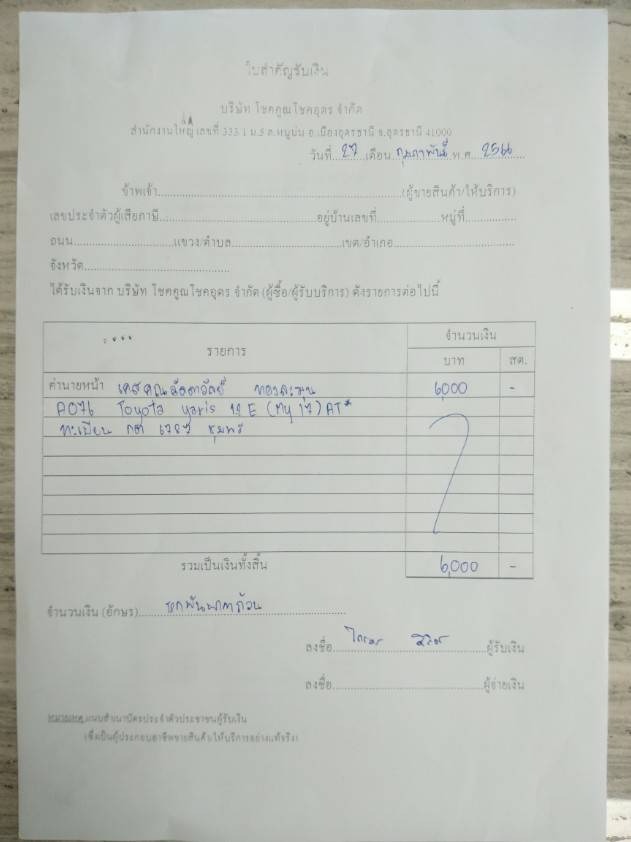 ใบสำคัญรับเงิน
บริษัท โชคคูณโชคอุดร จำกัด
สำนักงานใหญ่ เลขที่ 333/1 ม.5 ต.หมูม่น อ.เมืองอุดรธานี จ.อุดรธานี 41000
วันที่ 27 เดือน กุมภาพันธ์ พ.ศ. 2566
ข้าพเจ้า (ผู้ขายสินค้า/ให้บริการ)
เลขประจำตัวผู้เสียภาษี อยู่บ้านเลขที่ หมู่ที่
ถนน แขวง/ตำบล เขต/อำเภอ
จังหวัด
ได้รับเงินจาก บริษัท โชคคูณโชคอุดร จำกัด (ผู้ซื้อ/ผู้รับบริการ) ดังรายการต่อไปนี้
รายการ จำนวนเงิน
บาท สต.
ค่านายหน้า เคสคุณ 6,000 -
A076 Toyota yaris 1.2 E (My 17) AT*
ทะเบียน กต 6787 ชุมพร
รวมเป็นเงินทั้งสิ้น 6,000 -
จำนวนเงิน (อักษร) หกพันบาทถ้วน
ลงชื่อ ผู้รับเงิน
ลงชื่อ ผู้จ่ายเงิน
หมายเหตุ แนบสำเนาบัตรประจำตัวประชาชนผู้รับเงิน
(ซึ่งเป็นผู้ประกอบอาชีพขายสินค้า/ให้บริการอย่างแท้จริง)